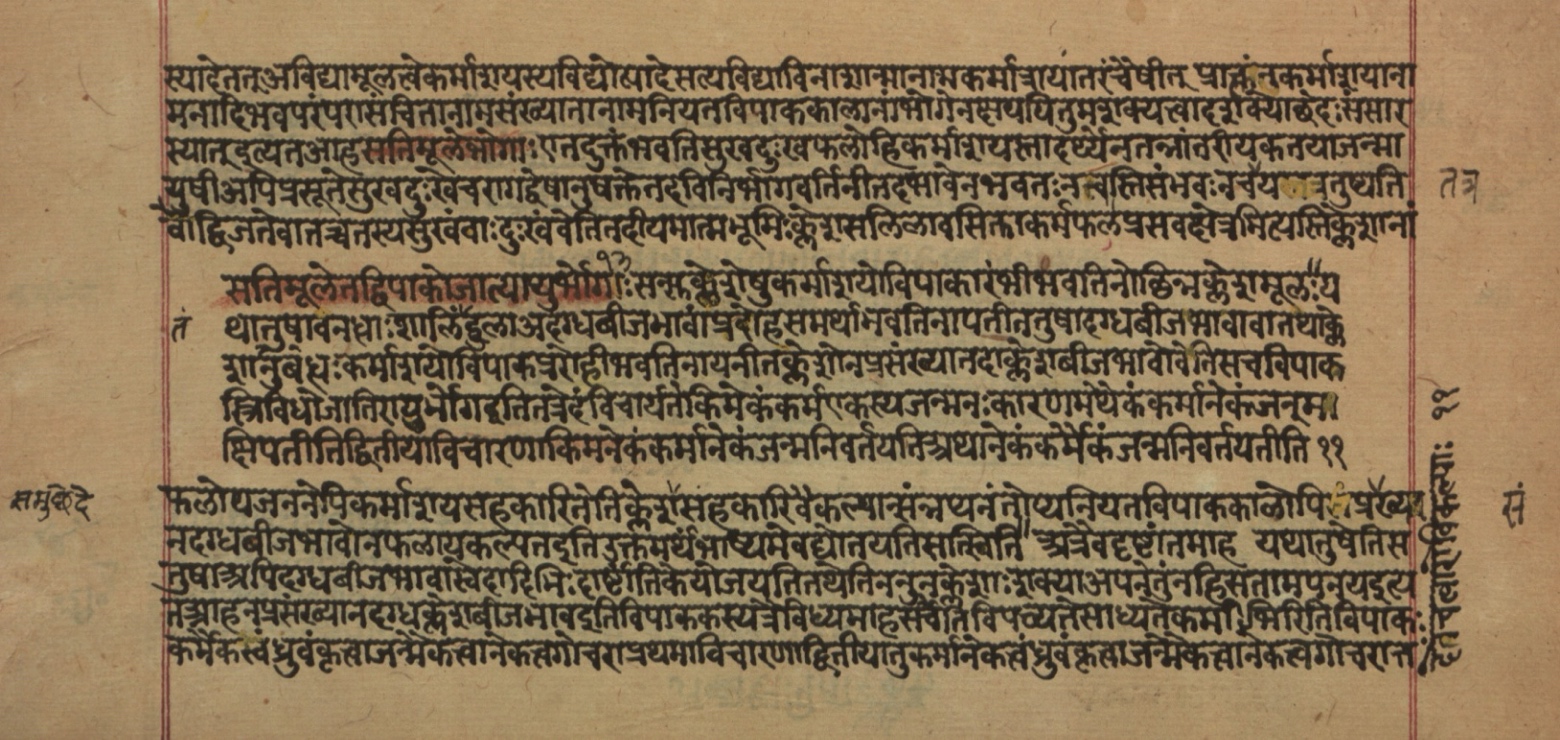 स्यादेतत्अविद्यामूलत्वेकर्माशयस्यविद्योत्पादेसत्यविद्याविनाशान्मानामकर्माशयांतरंचैषीत् प्राक्तंनकर्माशयाना
मनादिभवपरंपरासंचितानामसंख्यातानामनियतविपाककालानांभोगेनक्षपयितुमशक्यत्वादशक्योछेदःसंसार
स्यात्इत्यतआहसतिमूलेभोगाःएतदुक्तंभवतिसुखदुःखफलोहिकर्माशयस्तादर्थ्येनतन्नांतरीयकतयाजन्मा
युषीअपिप्रसूतेसुखदुःखेचरागद्वेषानुषक्तेतदविनिर्भागवर्तिनीतदभावेनभवतःनचास्तिसंभवःनचय तुष्यति
तत्र
वोद्विजतेवातच्चतस्यसुखंवाःदुःखंवेतितदीयमात्मभूमिःक्लेशसलिलावसिक्ताकर्मफलप्रसवक्षेत्रमित्यस्तिक्लेशानां
सतिमूलेतद्विपाकोजात्यायुर्भोगाः१३सत्सुक्लेशेषुकर्माशयोविपाकारंभीभवतिनोछिन्नक्लेशमूलःय
तं
थातुषावनधाःशालिंदुलाअदग्धबीजभावांप्ररोहसमर्थाभवतिनापतीततुषादग्धबीजभावावातथाक्ले
शानुबंधःकर्माशयोविपाकप्ररोहीभवतिनायनीतक्लेशोनप्रसंख्यानदाक्लेशबीजभावोवेतिसचविपाक
स्त्रिविधोजातिरायुर्भोगइतितत्रेदंविचार्यतेकिमेकंकर्मएकस्यजन्मनःकारणमथैकंकर्मानेकंजन्म
क्षिपतीतिद्वितीयाविचारणाकिमनेकंकर्मानेकंजन्मनिवर्तयतिअथानेकंकर्मैकंजन्मनिवर्तयतीति ११
फलोयजननेपिकर्माशयसहकारितेतिक्लेशसहकारिवैकल्यान्संन्नप्यनंतोप्यनियतविपाककालोपि
सं
नदग्धबीजभावोनफलायकल्पतइतिउक्तमर्थंभाष्यमेवद्योतयतिसत्स्विति अत्रैवदृष्टांतमाह यथातुषेतिस
तुषाअपिदग्धबीजभावाःस्वेदादिभिःदार्ष्टांतिकेयोजयतितथेतिननुनक्लेशाःशक्याअपनेतुंनहिसतामपनयइत्य
तआहनप्रसंख्यानदग्धक्लेशबीजभावइतिविपाककस्यत्रैविध्यमाहसचेतिविपच्यतेसाध्यतेकर्माभिरितिविपाकः
कर्मैकत्वंध्रुवंकृत्वाजन्मैकत्वानेकत्वगोचराप्रथमाविचारणाद्वितीयातुकर्मानेकत्वंध्रुवंकृत्वाजन्मैकत्वानेकत्वगोचरात